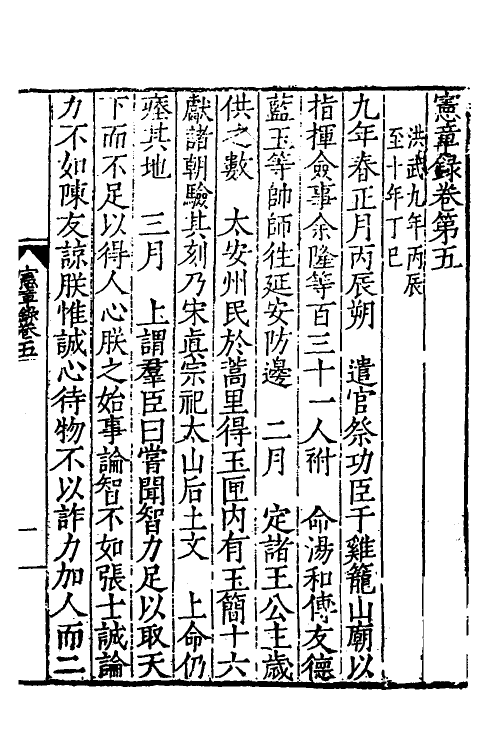 憲章錄卷第五
洪武九年丙辰
至十年丁巳
九年春正月丙辰朔　遣官祭功臣于雞籠山廟以
指揮僉事余隆等百三十一人祔　命湯和傅友德
藍玉等帥師徃延安防邊　二月　定諸王公主歲
供之數　太安州民於蒿里得玉匣內有玉簡十六
獻諸朝驗其刻乃宋真宗祀太山后土文　上命仍
瘞其地　三月　上謂羣臣曰嘗聞智力足以取天
下而不足以得人心朕之始事論智不如張士誠論
力不如陳友諒朕惟誠心待物不以詐力加人而二
憲章錄卷五
一